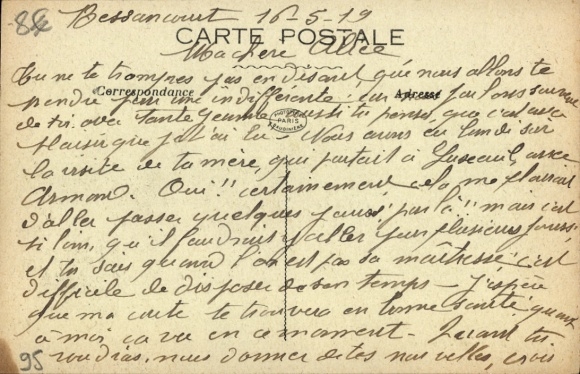 84
Bessancourt 16-5-19
CARTE POSTALE
Ma chère Alice
Tu ne te trompes pas en disant que nous allons te
Correspondance
Adresse
prendre pour une indifférente! car
de toi avec Tante Jeanne aussi tu penses, que c'est avec
PARIS
plaisir que je t'ai lu. Nous avons eu lundi soir
la visite de ta mère, qui partait à Luxeuil avec
Armand. Oui!! certainement cela me plairait
d'aller passer quelques jours par là!! mais c'est
si loin, qu'il faudrait y aller pour plusieurs jours;
et tu sais quand l'on est pas sa maîtresse c'est
difficile de disposer de son temps - J'espère
que ma carte te trouvera en bonne santé quant
à moi, ça va en ce moment. Quand tu
95
voudras, nous donner de tes nouvelles, crois